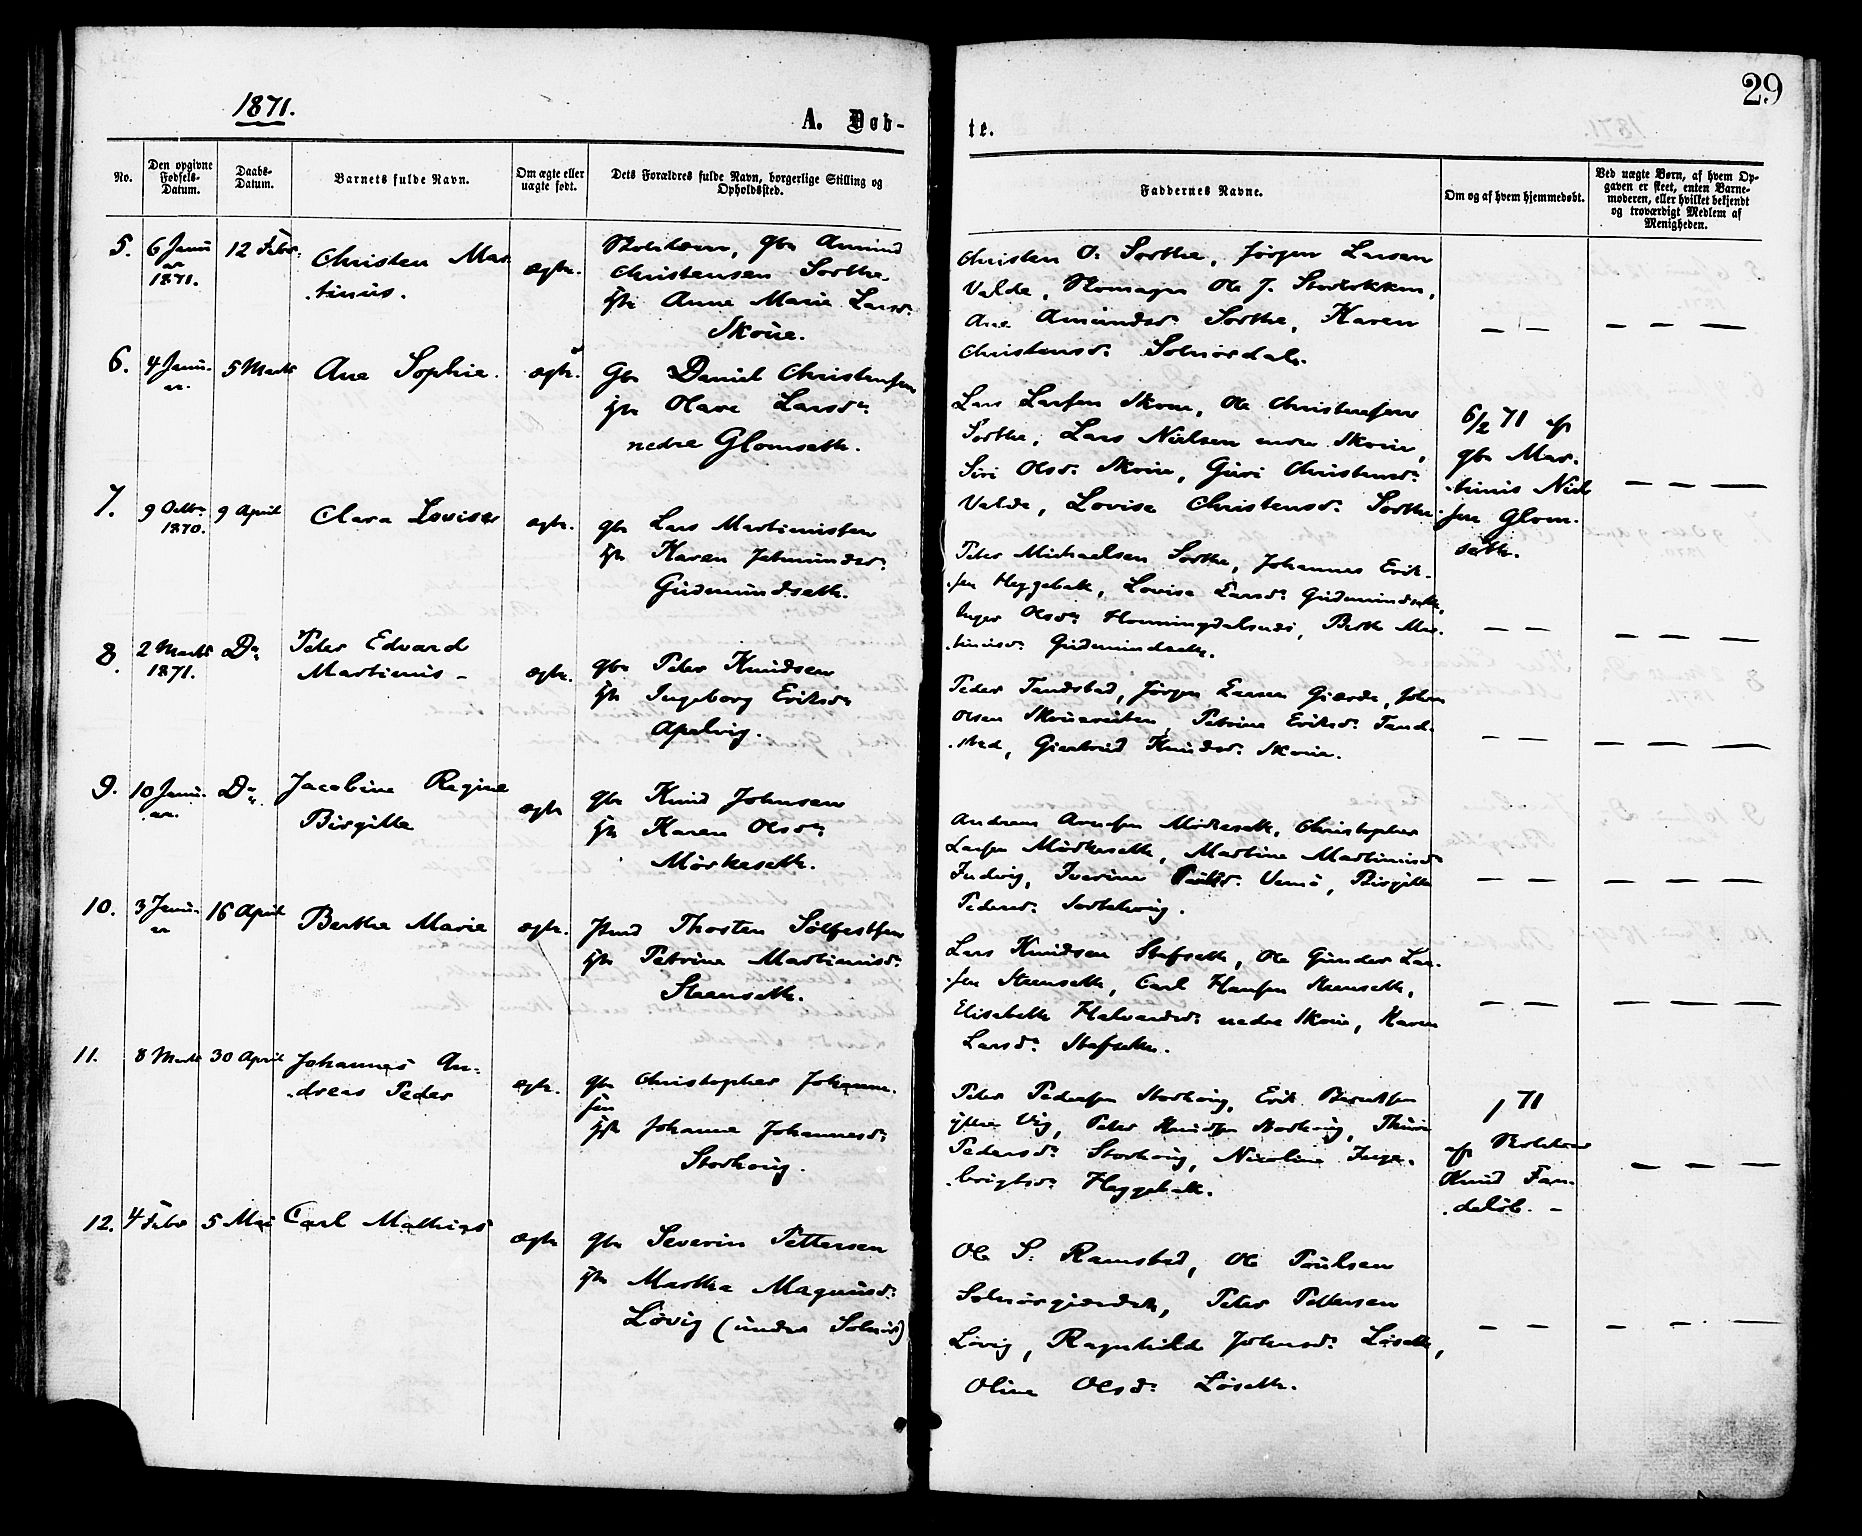 1871.
A. Døb-
te.
29
No.
Den opgivne Fødsels-Datum.
Daabs-Datum.
Barnets fulde Navn.
Om ægte eller uægte født.
Dets Forældres fulde Navn, borgerlige Stilling og Opholdssted.
Faddernes Navne.
Om og af hvem hjemmedøbt.
Ved uægte Børn, af hvem Opgaven er skeet, enten Barnemoderen, eller hvilket bekjendt og troværdigt Medlem af Menigheden.
5.
6 Janu
ar
1871.
12 Febr.
Christen Mar
tinus.
ægte.
Gbr Amund
Christensen Sorthe
Anne Marie Larsdr
Skoue.
Christen O. Sorthe, Jørgen Larsen
Valde, Ole J.
Ane Amundsdr Sorthe, Karen
Christensdr Solnørdal.
6.
4 Janu-
ar.
5 Marts
Ane Sophie.
ægte.
Gbr Daniel Christensen
Olave Larsdr
nedre Glomseth.
Lars Larsen Skoue, Ole Christensen
Sorthe, Lars Nielsen nedre Skoue,
Siri Olsdr Skoue, Guri Christensdr
Valde, Lovise Christensdr Sorthe
6/2 71 af
gbr Mar-
tinus Niel
sen Glom-
seth.
7.
9 Octbr
1870.
9 April
Clara Lovise
ægte.
gbr Lars Martinussen
Karen
Gudmundseth.
Peter Michaelsen Sorthe, Johannes Erik-
sen Heggebak, Lovise Larsdr Gudmundseth,
Inger Olsdr Honningdalsnes, Berthe Mar-
tinusdr Gudmundseth.
8.
2 Marts
1871.
Do
Peter Edvard
Martinus -
ægte.
gbr Peter Knudsen
Ingeborg Eriksdr
Apelvig.
Peder Tandstad, Jørgen Larsen Giærde, John
Olsen Skouereiten, Petrine Eriksdr Tand-
stad, Giertrud Knudsdr Skoue.
9.
10 Janu-
ar.
Do
Jacobine Regine
Birgitte
ægte
gbr Knud Johnsen
Karen Olsdr
Mørkeseth.
Andreas Arnesen Mørkeseth, Christopher
Larsen Mørkeseth, Martine Martinusdr
Iverine Paulsdr Vemø, Birgitte
Pedersdr
10.
3 Janu-
ar
16 April
Berthe Marie
ægte.
Thosten
Petrine Martinusdr
Steenseth.
Lars Knudsen Stafseth, Ole Gunder Lar-
sen Steenseth, Carl Hansen Steenseth,
Elisabeth Halvardsdr nedre Skoue, Karen
Larsdr Stafseth.
11.
8 Marts
30 April
Johannes An-
dreas Peder
ægte.
gbr Christopher Johanne-
sen
Johanne Johannesdr
Storhoug.
Peter Pedersen Storhoug, Erik Berntsen
ytre Vig, Peter Knudsen Storhoug, Thurine
Pedersdr Storhoug, Nicoline Inge-
brigtsdr Heggebak.
/ 71
af
Knud Fan-
deløb. -
12.
4 Febr
5 Mai
Carl Mathias
ægte
gbr Severin Pettersen
Marthe Magnusdr
Løvig (under Solnør)
Ole S. Ramstad, Ole Poulsen
Solnørgierdet, Peter Pettersen
Løvig, Ragnhilde Johnsdr Løseth,
Oline Olsdr Løseth.